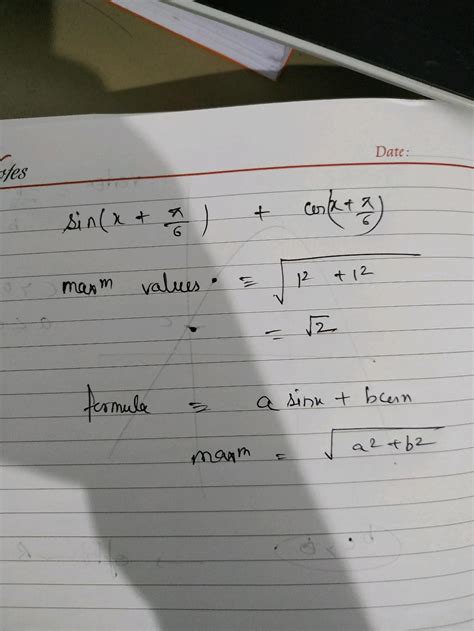 Date:
sin(x + π/6) + cos(x + π/6)
maxm values = √1² + 1²
= √2
formula = a sinx + bcosx
maxm = √a² + b²